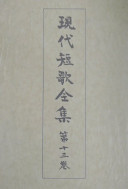 現代短歌全集
第十三卷